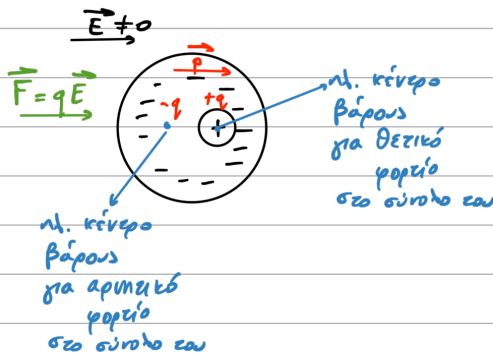 E ≠ 0
p
F = qE
-q
+q
+
ηλ. κέντρο
βάρους
για θετικό
φορτίο
στο σύνολο του
ηλ. κέντρο
βάρους
για αρνητικό
φορτίο
στο σύνολο του